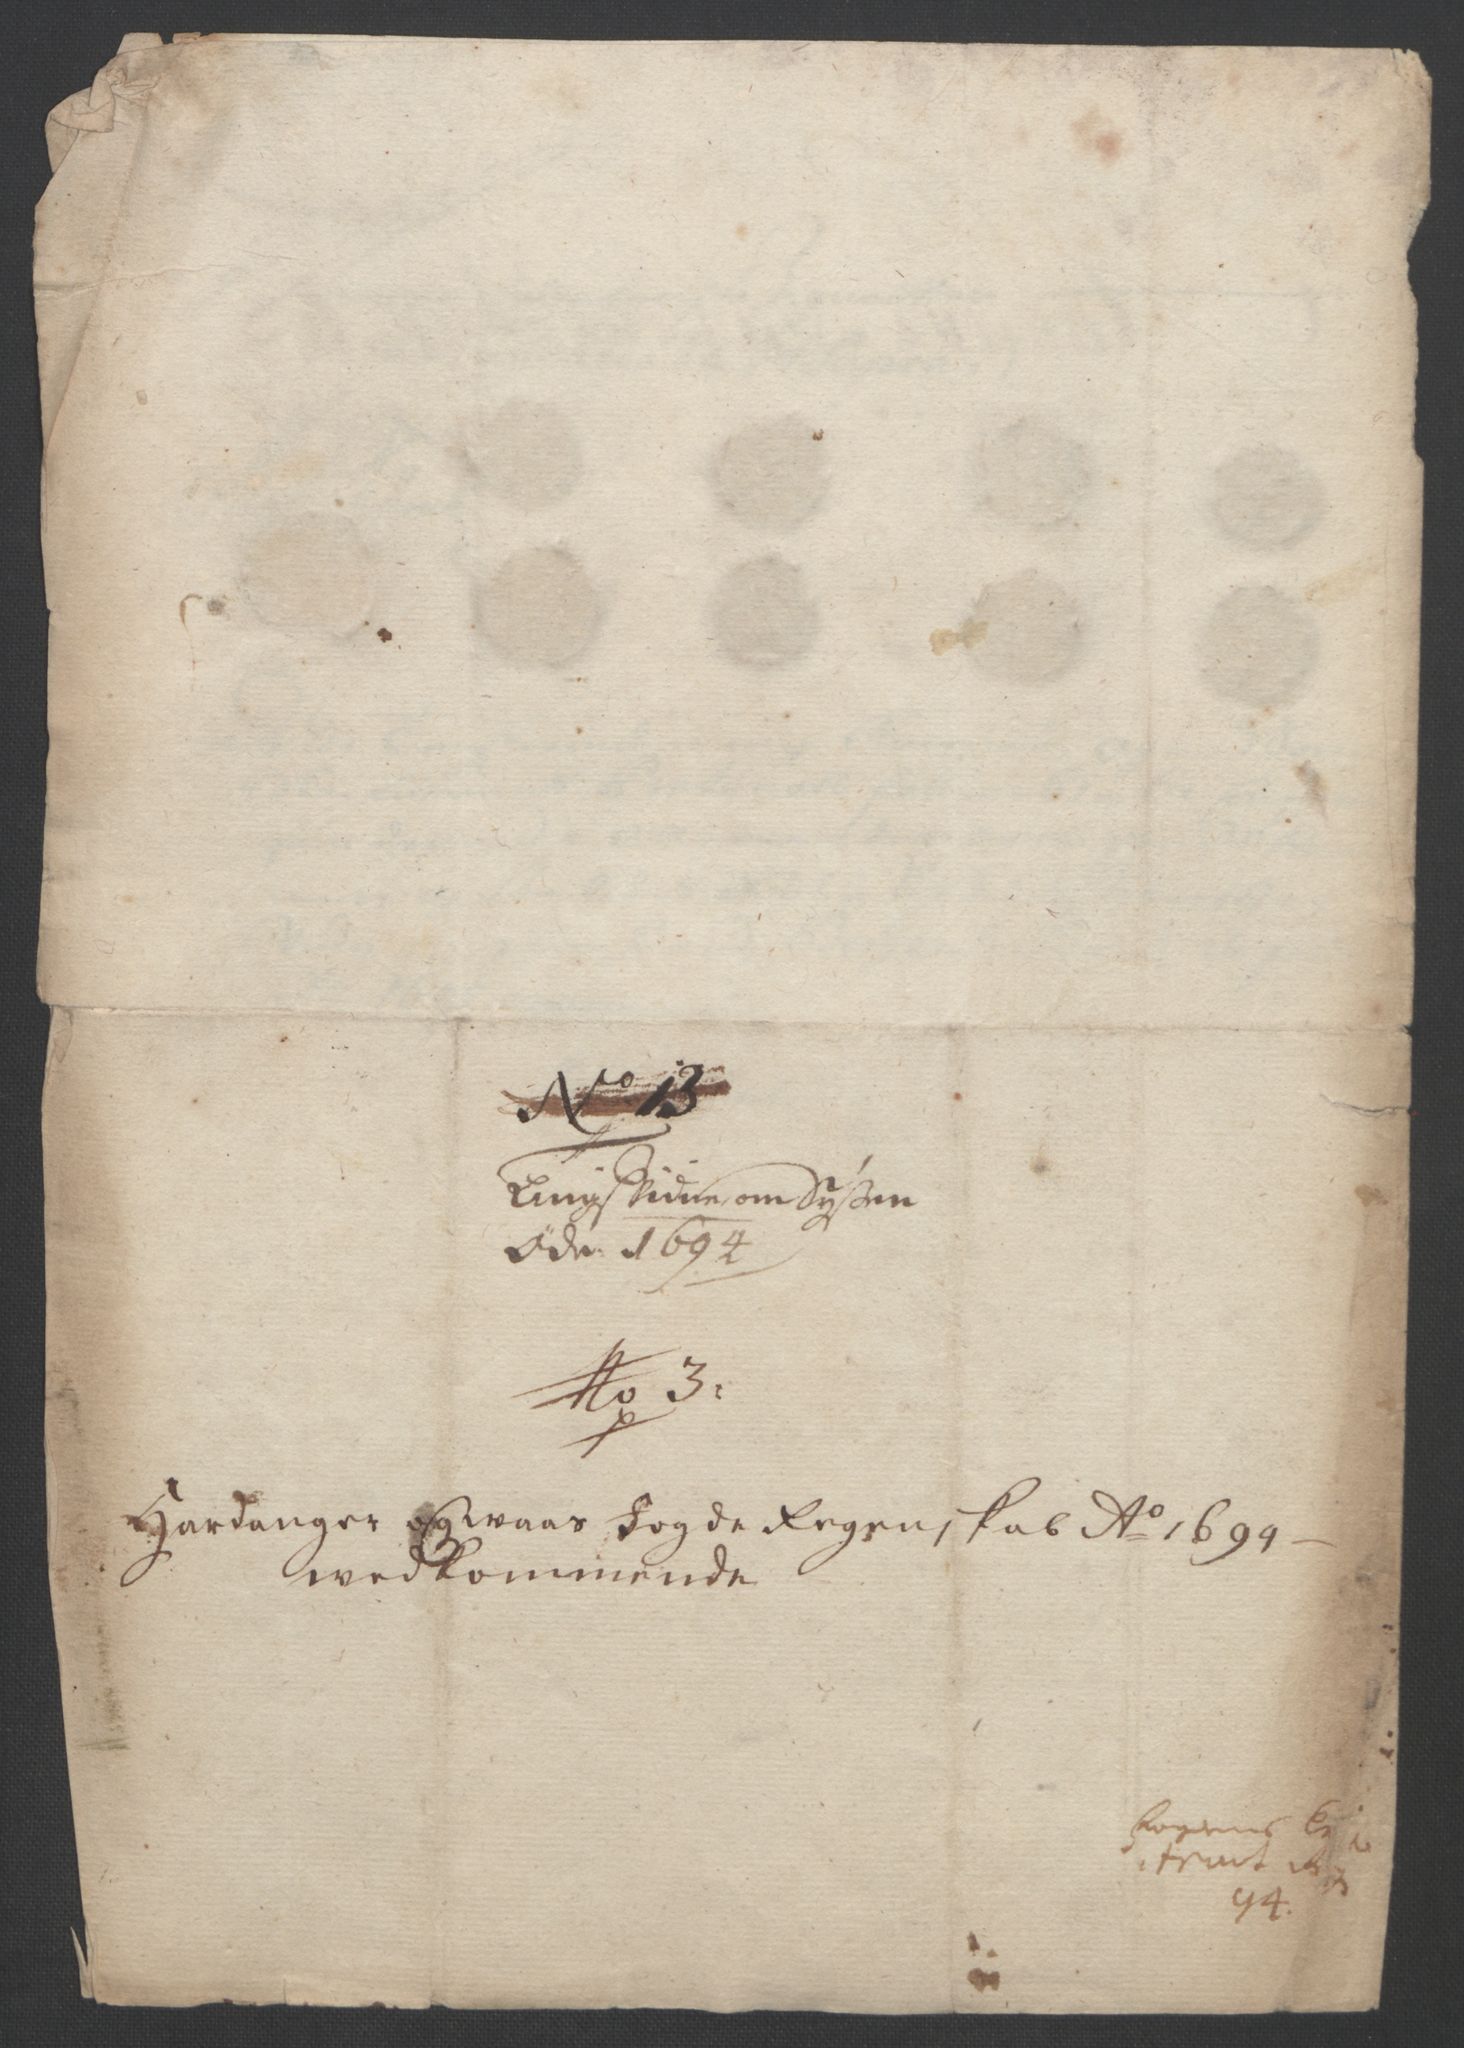 No 13
Tingsvidne om Syßen
Øde 1694
No 3:
Hardanger og waas fogde Regenskab Ao 1694
wedkommende
94.